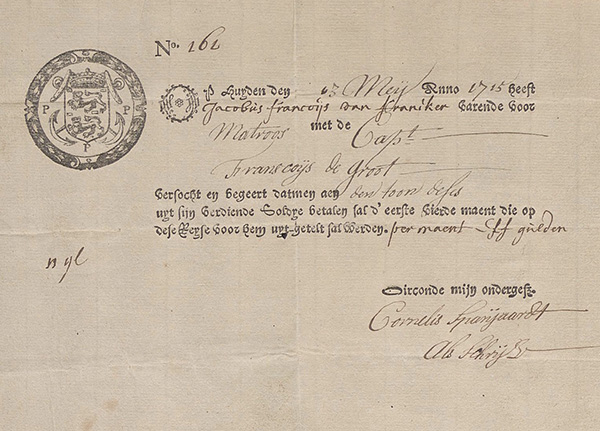 No. 161
P P
P
Op Huyden den 23 Meij Anno 1715 heeft
Jacobus Francoijs van Franiker varende voor
Matroos met de Capt
Franscoijs de Groot
Versocht en begeert datmen aen den toon deses
uyt sijn verdiende Soldye betalen sal d' eerste vierde maent die op
dese Reyse voor hem uyt-getelt sal werden. per maent gulden
Oirconde mijn ondergesz.
Cornelis Spanjaardt
Als Schrijv